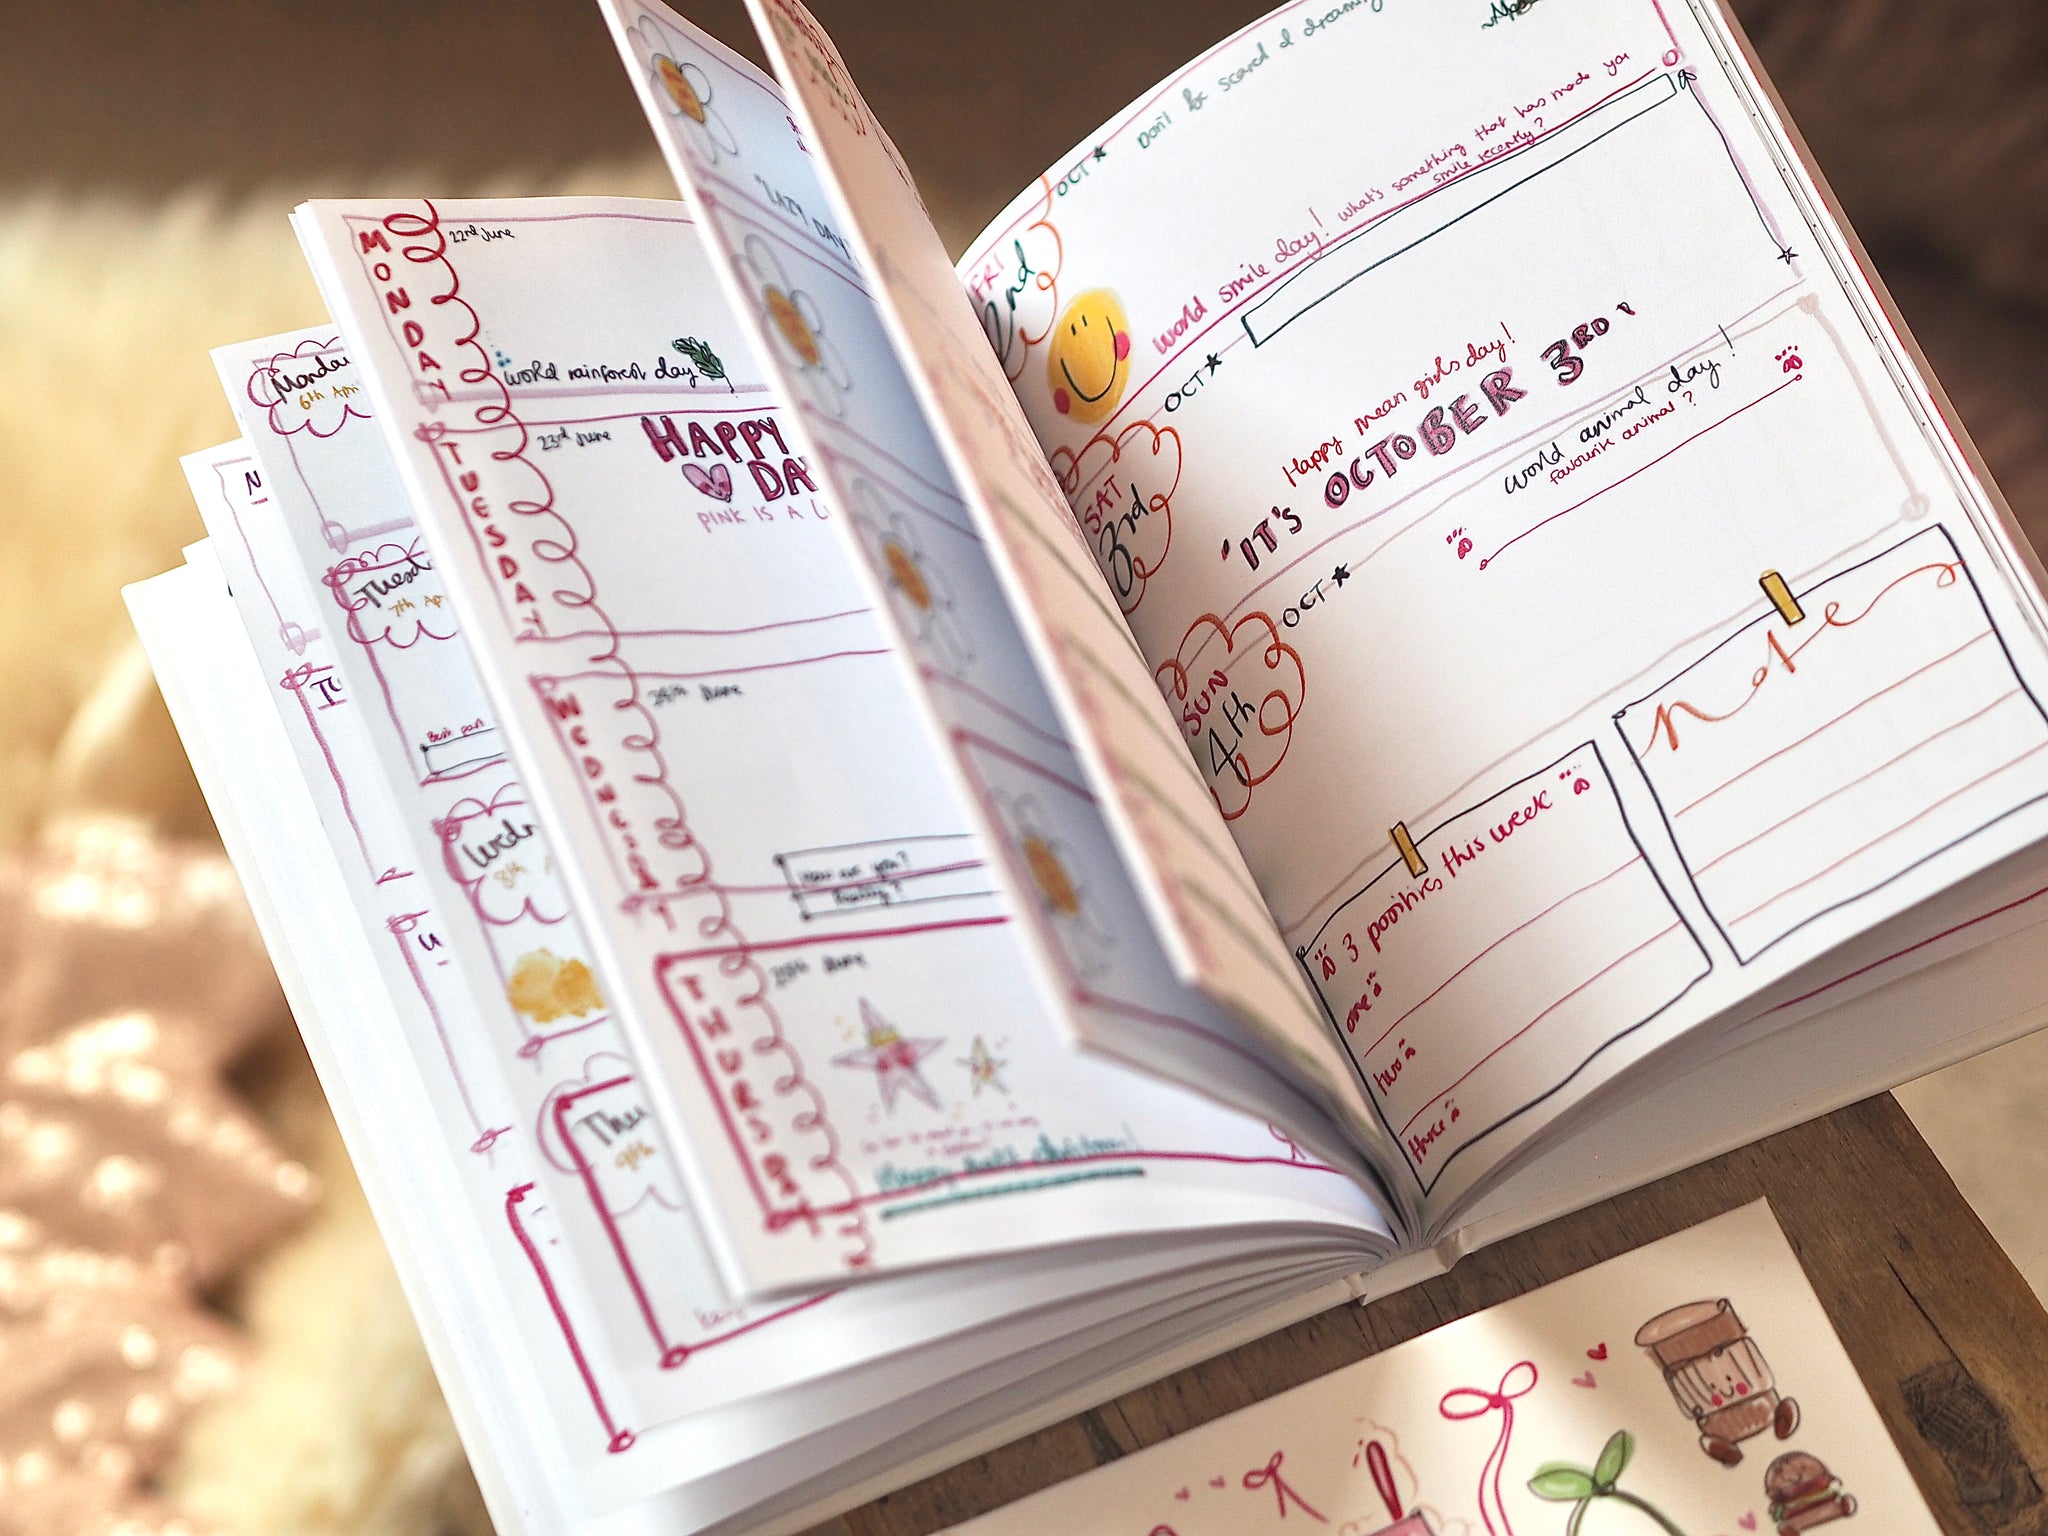 MONDAY
22nd June
world rainforest day
TUESDAY
23rd June
HAPPY
DA
PINK IS A
WEDNESDAY
24th June
How are you?
Really?
THURSDAY
25th June
Happy half christmas!
Monday
6th Apri
7th Ap
Best part
Wedn
8th
Thu
9th
"LAZY DAY"
OCT
Don't be scared of dreaming
FRI
2nd
World smile day! What's something that has made you
smile recently?
OCT
SAT
3rd
Happy mean girls day!
'IT'S OCTOBER 3RD'
OCT
SUN
4th
World animal day!
favourite animal?
3 positives this week
one
two
three
note